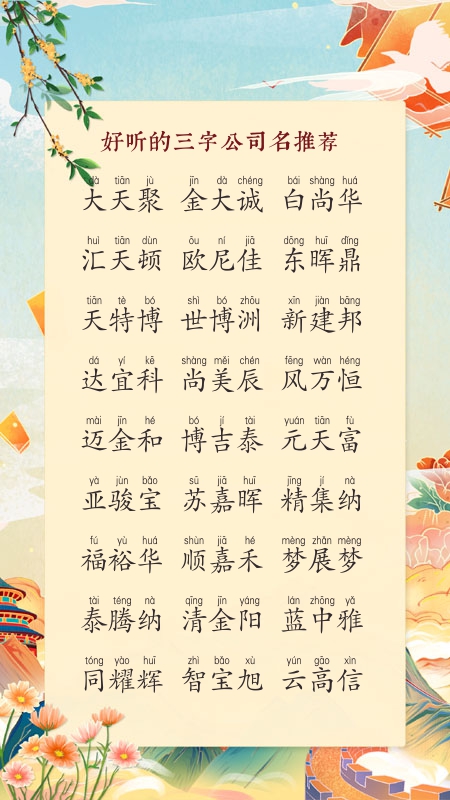 好听的三字公司名推荐
dà tiān jù jīn dà chéng bái shàng huá
大天聚 金大诚 白尚华
huì tiān dùn ōu ní jiā dōng huī dǐng
汇天顿 欧尼佳 东晖鼎
tiān tè bó shì bó zhōu xīn jiàn bāng
天特博 世博洲 新建邦
dá yí kē shàng měi chén fēng wàn héng
达宜科 尚美辰 风万恒
mài jīn hé bó jí tài yuán tiān fù
迈金和 博吉泰 元天富
yà jùn bǎo sū jiā huī jīng jí nà
亚骏宝 苏嘉晖 精集纳
fú yù huá shùn jiā hé mèng zhǎn mèng
福裕华 顺嘉禾 梦展梦
tài téng nà qīng jīn yáng lán zhōng yǎ
泰腾纳 清金阳 蓝中雅
tóng yào huī zhì bǎo xù yún gāo xìn
同耀辉 智宝旭 云高信